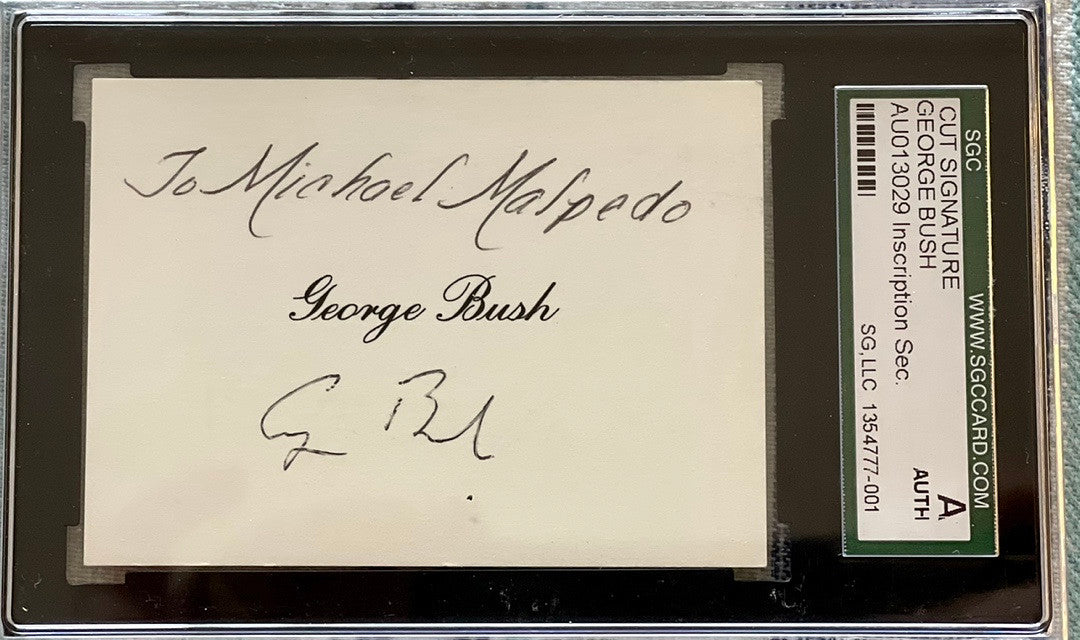 To Michael Malpedo
George Bush
G Bush
SGC WWW.SGCCARD.COM
CUT SIGNATURE
GEORGE BUSH
AU013029 Inscription Sec.
SG, LLC 1354777-001
A
AUTH